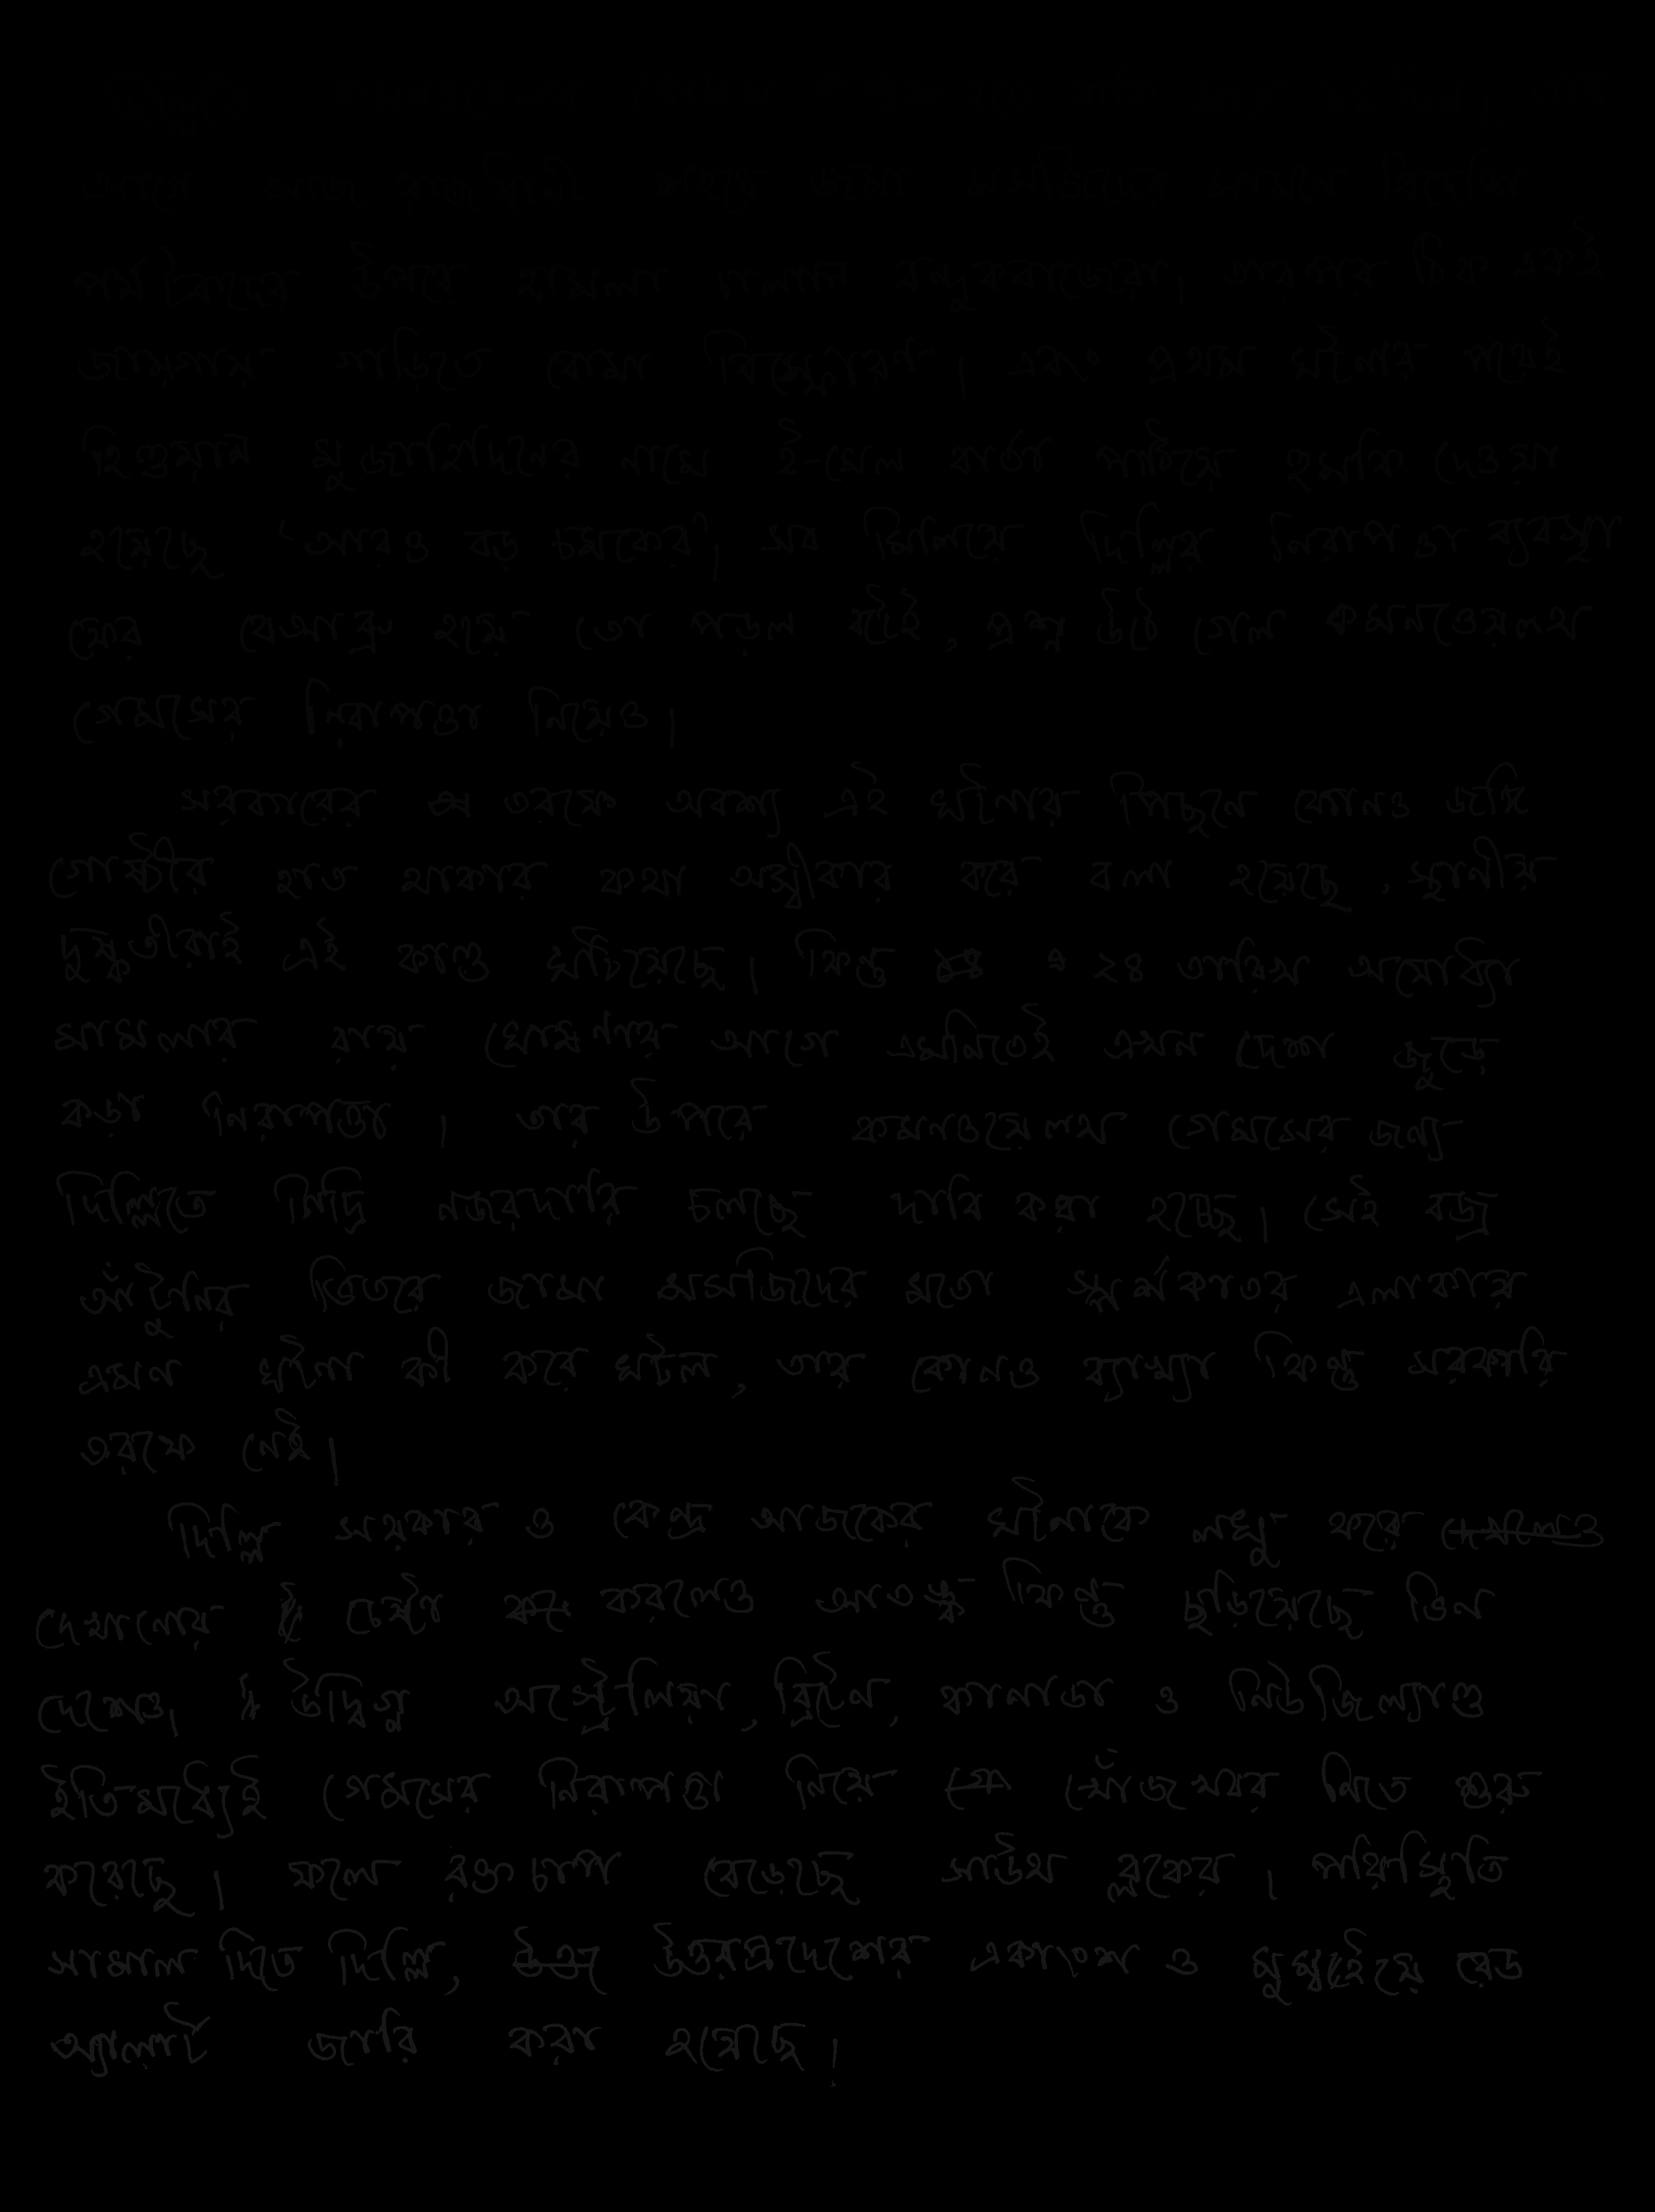 আগে আজ রাজধানী শহরে জামা মসজিদের সামনে বিদেশি
পর্যটকদের উপরে হামলা চালাল বন্দুকবাজেরা। তারপর ঠিক একই
জায়গায় গাড়িতে বোমা বিস্ফোরণ। এবং প্রথম ঘটনার পরেই
ইণ্ডিয়ান মুজাহিদিনের নামে ই-মেল বার্তা পাঠিয়ে হুমকি দেওয়া
হয়েছে 'আরও বড় চমকের'। সব মিলিয়ে দিল্লির নিরাপত্তা ব্যবস্থা
ফের বেআব্রু হয়ে তো পড়ল বটেই, প্রশ্ন উঠে গেল কমনওয়েলথ
গেমসের নিরাপত্তা নিয়েও।
সরকারের তরফে অবশ্য এই ঘটনার পিছনে কোনও জঙ্গি
গোষ্ঠীর হাত থাকার কথা অস্বীকার করে বলা হয়েছে, স্থানীয়
দুষ্কৃতীরাই এই কাণ্ড ঘটিয়েছে। কিন্তু ২৪ তারিখ অযোধ্যা
মামলার রায় ঘোষণার আগে এমনিতেই এখন দেশ জুড়ে
কড়া নিরাপত্তা। তার উপরে কমনওয়েলথ গেমসের জন্য
দিল্লিতে নিশ্ছিদ্র নজরদারি চলছে দাবি করা হচ্ছে। সেই বজ্র
আঁটুনির ভিতরে জামা মসজিদের মতো স্পর্শকাতর এলাকায়
এমন ঘটনা কী করে ঘটল, তার কোনও ব্যাখ্যা কিন্তু সরকারি
তরফে নেই।
দিল্লি সরকার ও কেন্দ্র আজকের ঘটনাকে লঘু করে দেখলেও
দেখানোর চেষ্টা করলেও আতঙ্ক কিন্তু ছড়িয়েছে ভিন
দেশেও। উদ্বিগ্ন অস্ট্রেলিয়া, ব্রিটেন, কানাডা ও নিউজিল্যাণ্ড
ইতিমধ্যেই গেমসের নিরাপত্তা নিয়ে খোঁজখবর নিতে শুরু
করেছে। ফলে রক্তচাপ বেড়েছে সাউথ ব্লকের। পরিস্থিতি
সামাল দিতে দিল্লি, উত্তরপ্রদেশের একাংশ ও মুম্বইয়ে রেড
অ্যালার্ট জারি করা হয়েছে।